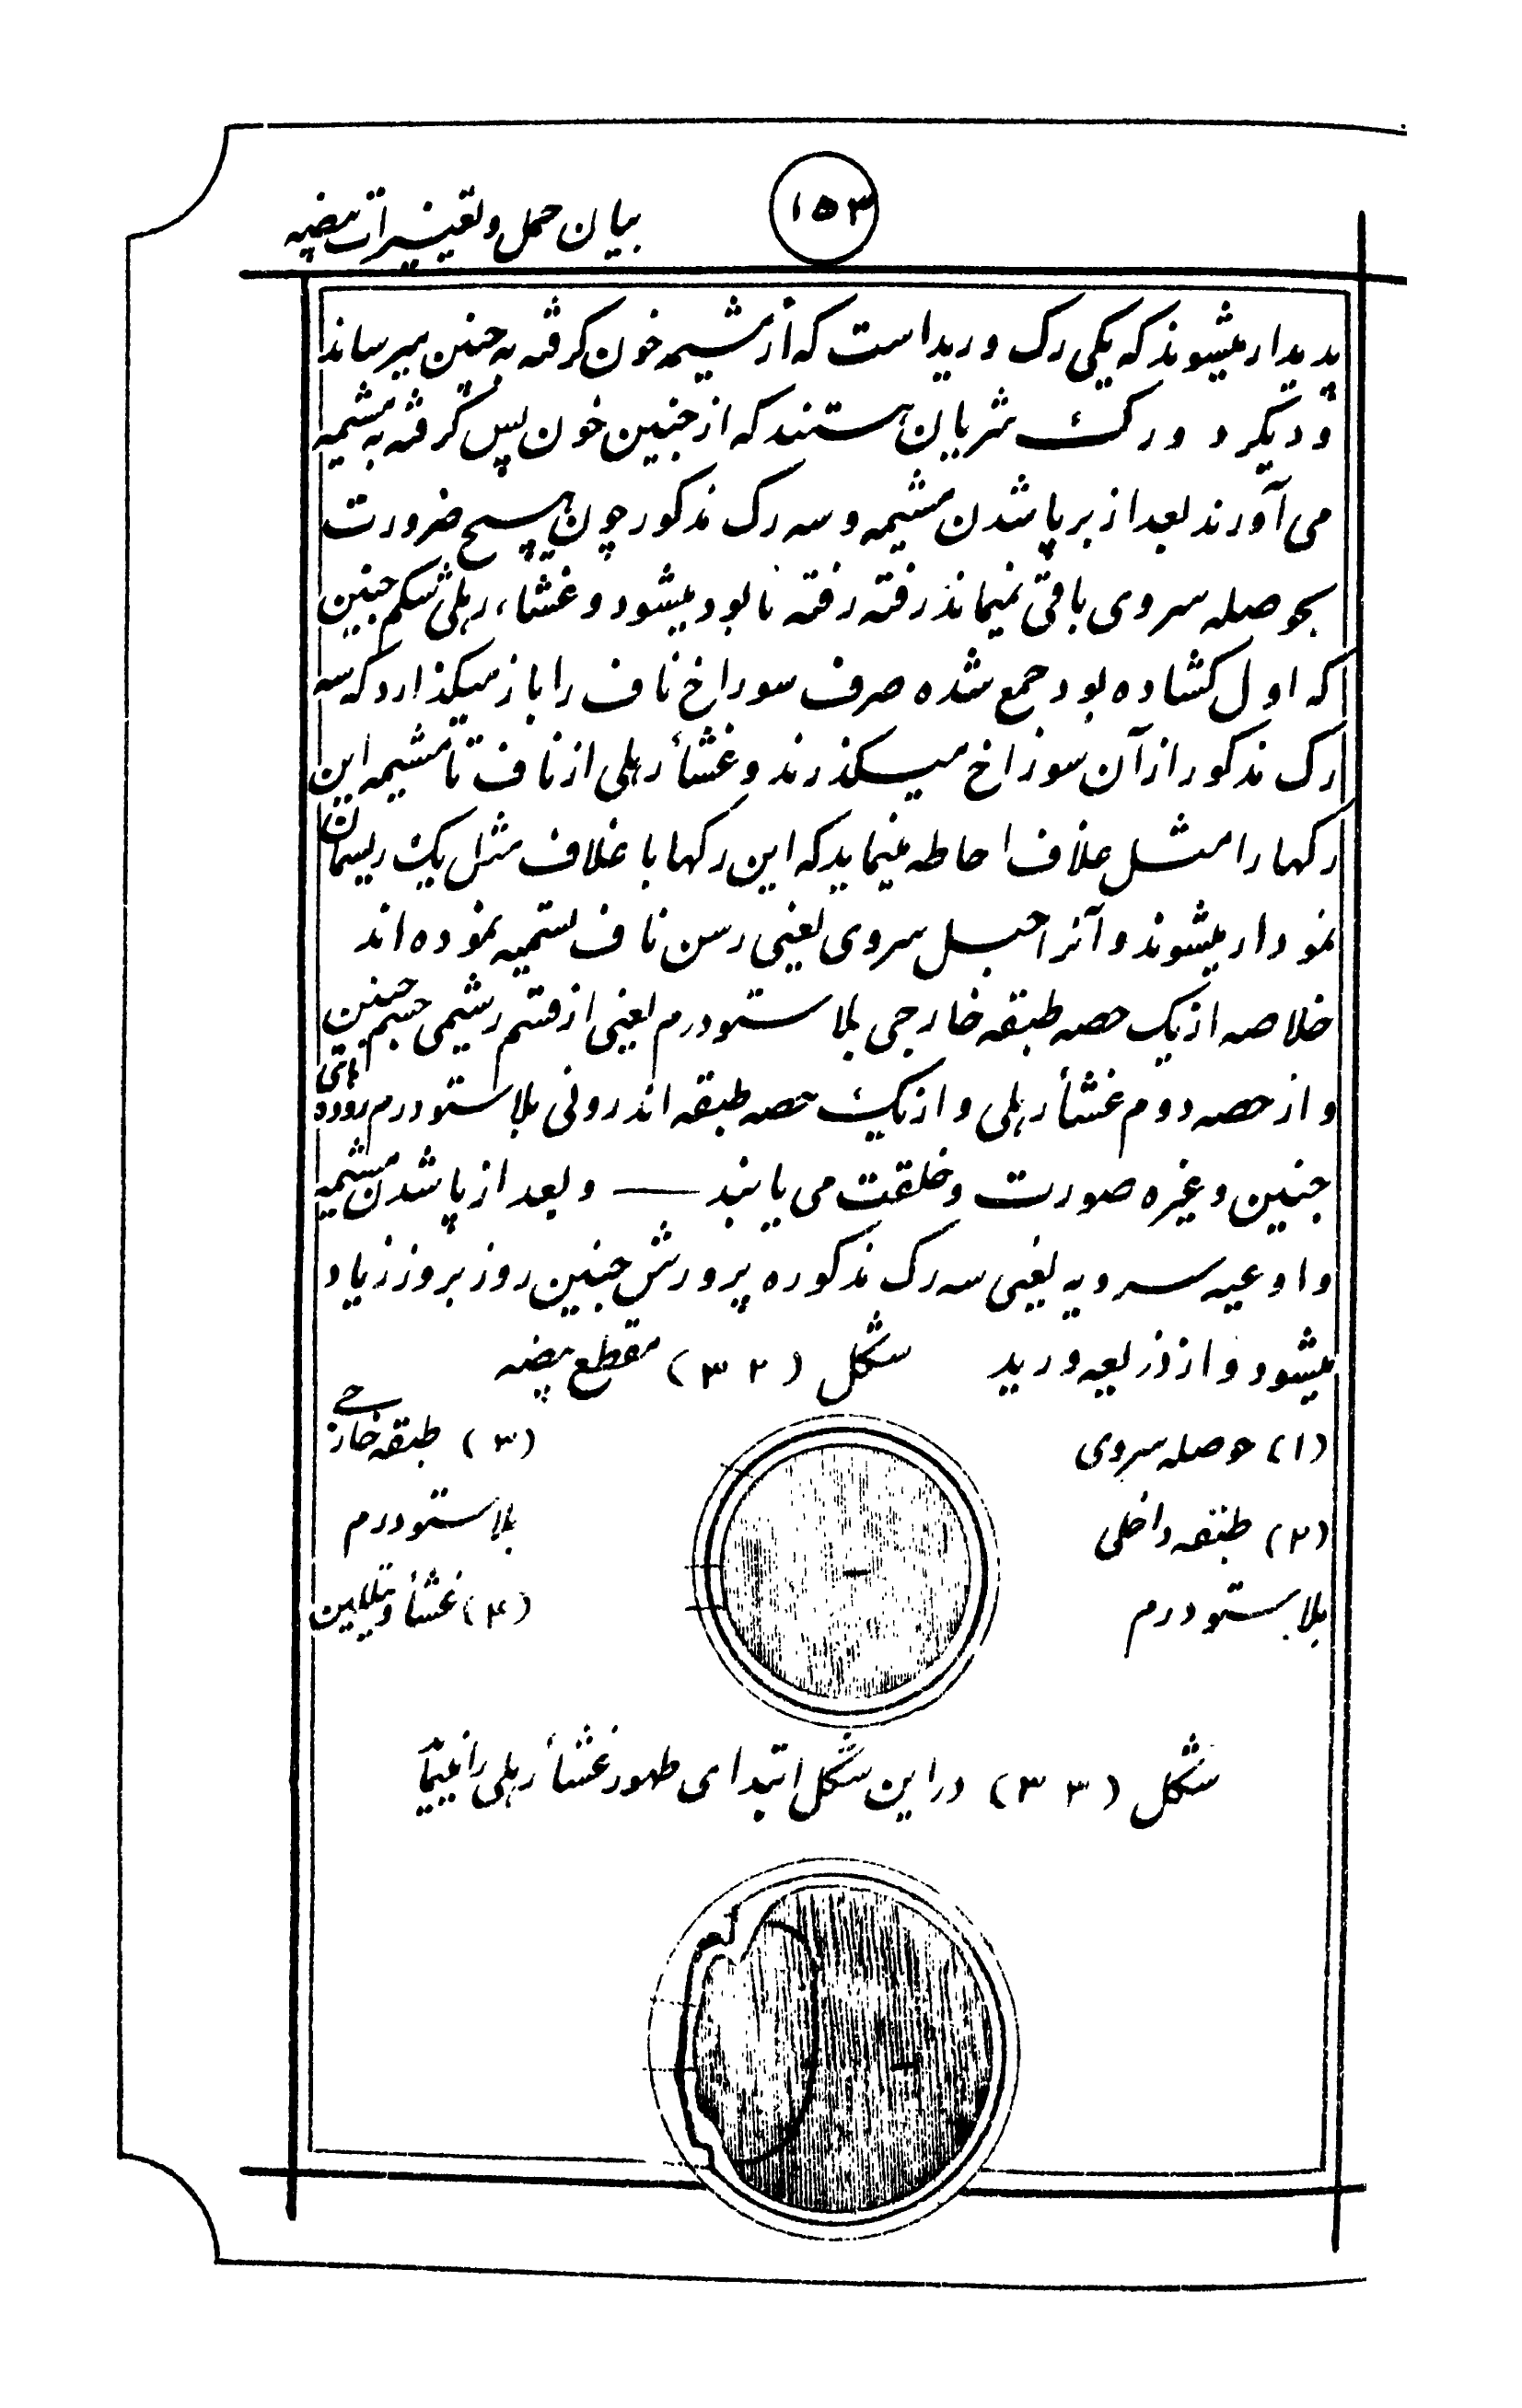 ۱۵۳
بیان حمل و تغییرات بیضه
پدیدار میشوند که یکی رگ ورید است که از مشیمه خون گرفته به جنین میرساند
و دیگر دو رگ شریان هستند که از جنین خون پس گرفته به مشیمه
می آورند بعد از برپا شدن مشیمه و سه رگ مذکور چون هیچ ضرورت
بحوصله سروی باقی نمیماند رفته رفته نابود میشود و غشاء رہلی شکم جنین
که اول کشاده بود جمع شده صرف سوراخ ناف را باز میگذارد که سه
رگ مذکور از آن سوراخ میگذرند و غشأ رہلی از ناف تا مشیمه این
رگها را مثل غلاف احاطه مینماید که این رگها با غلاف مثل یک ریسمان
نمودار میشوند و آنرا حبل سروی یعنی رسن ناف تسمیه نموده اند
خلاصه از یک حصه طبقه خارجی بلاستودرم یعنی از قسم رشیمی جسم جنین
و از حصه دوم غشأ رہلی و از یک حصه طبقه اندرونی بلاستودرم روده های
جنین و غیره صورت و خلقت می یابند — و بعد از پا شدن مشیمه
و اوعیه سرویه یعنی سه رگ مذکوره پرورش جنین روز بروز زیاد
میشود و از ذریعه ورید
شکل (۳۲) مقطع بیضه
(۱) حوصله سروی
(۲) طبقه داخلی
بلاستودرم
(۳) طبقه خارجی
بلاستودرم
(۴) غشأ ویتلین
شکل (۳۳) در این شکل ابتدای ظهور غشأ رہلی را مینماید